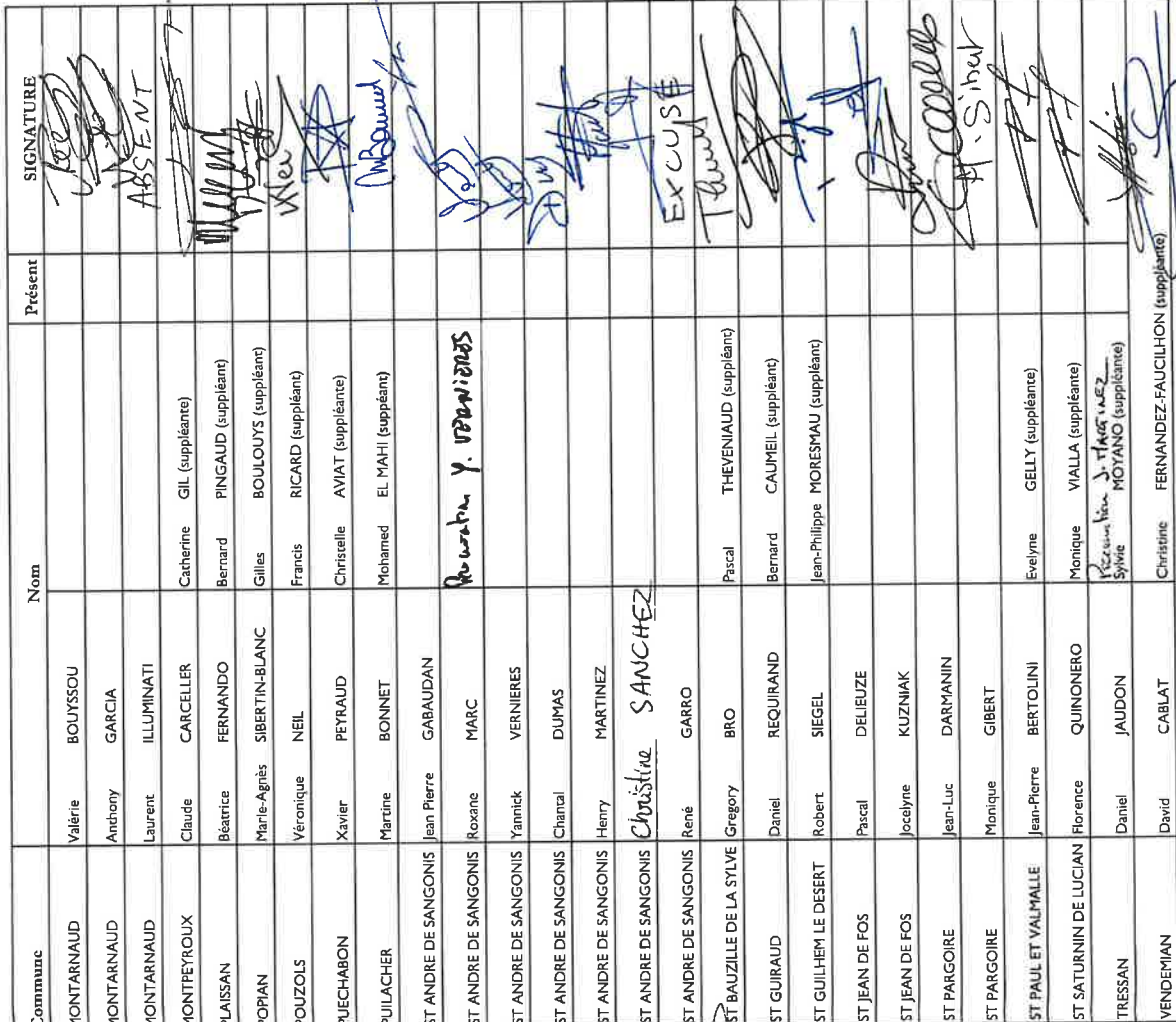 Commune Nom Présent SIGNATURE
MONTARNAUD Valérie BOUYSSOU
MONTARNAUD Anthony GARCIA
MONTARNAUD Laurent ILLUMINATI ABSENT
MONTPEYROUX Claude CARCELLER Catherine GIL (suppléante)
PLAISSAN Béatrice FERNANDO Bernard PINGAUD (suppléant)
POPIAN Marie-Agnès SIBERTIN-BLANC Gilles BOULOUYS (suppléant)
POUZOLS Véronique NEIL Francis RICARD (suppléant)
PUECHABON Xavier PEYRAUD Christelle AVIAT (suppléante)
PUILACHER Martine BONNET Mohamed EL MAHI (suppéant)
ST ANDRE DE SANGONIS Jean Pierre GABAUDAN
ST ANDRE DE SANGONIS Roxane MARC Y. VERNIERES
ST ANDRE DE SANGONIS Yannick VERNIERES
ST ANDRE DE SANGONIS Chantal DUMAS
ST ANDRE DE SANGONIS Henry MARTINEZ
ST ANDRE DE SANGONIS Christine SANCHEZ
ST ANDRE DE SANGONIS René GARRO EXCUSE
ST BAUZILLE DE LA SYLVE Gregory BRO Pascal THEVENIAUD (suppléant)
ST GUIRAUD Daniel REQUIRAND Bernard CAUMEIL (suppléant)
ST GUILHEM LE DESERT Robert SIEGEL Jean-Philippe MORESMAU (suppléant)
ST JEAN DE FOS Pascal DELIEUZE
ST JEAN DE FOS Jocelyne KUZNIAK
ST PARGOIRE Jean-Luc DARMANIN
ST PARGOIRE Monique GIBERT
ST PAUL ET VALMALLE Jean-Pierre BERTOLINI Evelyne GELLY (suppléante)
ST SATURNIN DE LUCIAN Florence QUINONERO Monique VIALLA (suppléante)
J. MARTINEZ
TRESSAN Daniel JAUDON Sylvie MOYANO (suppléante)
VENDEMIAN David CABLAT Christine FERNANDEZ-FAUCILHON (suppléante)